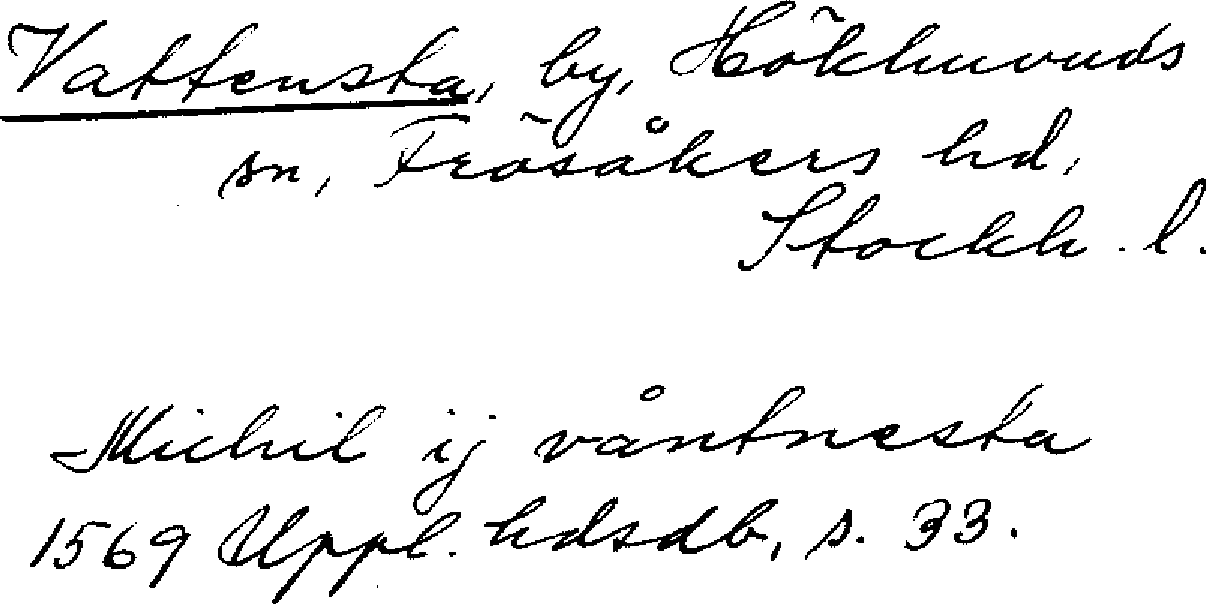 Vattensta, by, Hökhuvuds
sn, Frösåkers hd,
Stockh. l.
Michil ij våntnesta
1569 Uppl. hdsdb, s. 33.